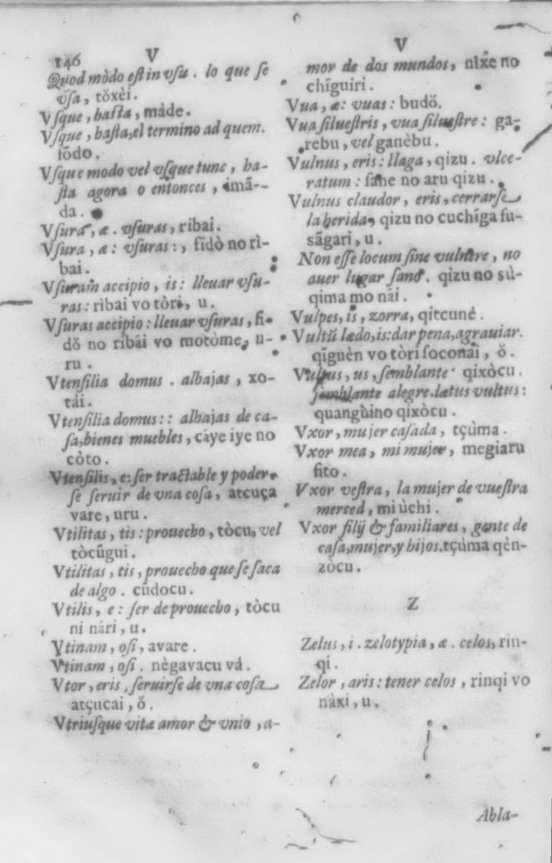 146
V
Quod mòdo est in vsu. lo que se
vsa, tŏxèi.
Vsque, hasta, máde.
Vsque, hasta, el termino ad quem.
iŏdo.
Vsque modo vel vsque tunc, ha-
sta agora o entonces, imā-
da.
Vsura, æ. vsuras, ribai.
Vsura, æ: vsuras:, fidò no rì-
bai.
Vsuram accipio, is: lleuar vsu-
ras: ribai vo tòri, u.
Vsuras accipio: lleuar vsuras, fi-
dŏ no ribai vo motòme, u-
ru.
Vtensilia domus. alhajas, xo-
tái.
Vtensilia domus:: alhajas de ca-
sa, bienes muebles, càye iye no
còto.
Vtensilis, e: ser tractable y poder-
se seruir de vna cosa, atcuça
vare, uru.
Vtilitas, tis: prouecho, tòcu, vel
tòcūgui.
Vtilitas, tis, prouecho que se saca
de algo. cūdocu.
Vtilis, e: ser de prouecho, tòcu
ni nári, u.
Vtinam, osi, avare.
Vtinam, osi. nègavacu vá.
Vtor, eris, seruirse de vna cosa
atçucai, ŏ.
Vtriusque vitæ amor & vnio, a-
V
mor de dos mundos, nixe no
chīguiri.
Vua, æ: vuas: budŏ.
Vua siluestris, vua siluestre: ga-
rebu, vel ganèbu.
Vulnus, eris: llaga, qizu. vlce-
ratum: sane no aru qizu.
Vulnus claudor, eris, cerrarse
la herida, qizu no cuchiga fu-
sāgari, u.
Non esse locum sine vulnere, no
auer lugar sano. qizu no sù-
qima mo nāi.
Vulpes, is, zorra, qitcuné.
Vultū lædo, is: dar pena, agrauiar.
qiguèn vo tòri soconāi, ŏ.
Vultus, us, semblante qixòcu.
semblante alegre. lætus vultus:
quangùino qixòcu.
Vxor, mujer casada, tçùma.
Vxor mea, mi mujer, megiaru
fito.
Vxor vestra, la mujer de vuestra
merced, mi ùchi.
Vxor filij & familiares, gente de
casa, mujer, y hijos. tçùma qèn-
zòcu.
Z
Zelus, i. zelotypia, æ. celos, rin-
qi.
Zelor, aris: tener celos, rinqi vo
náxi, u.
Abla-